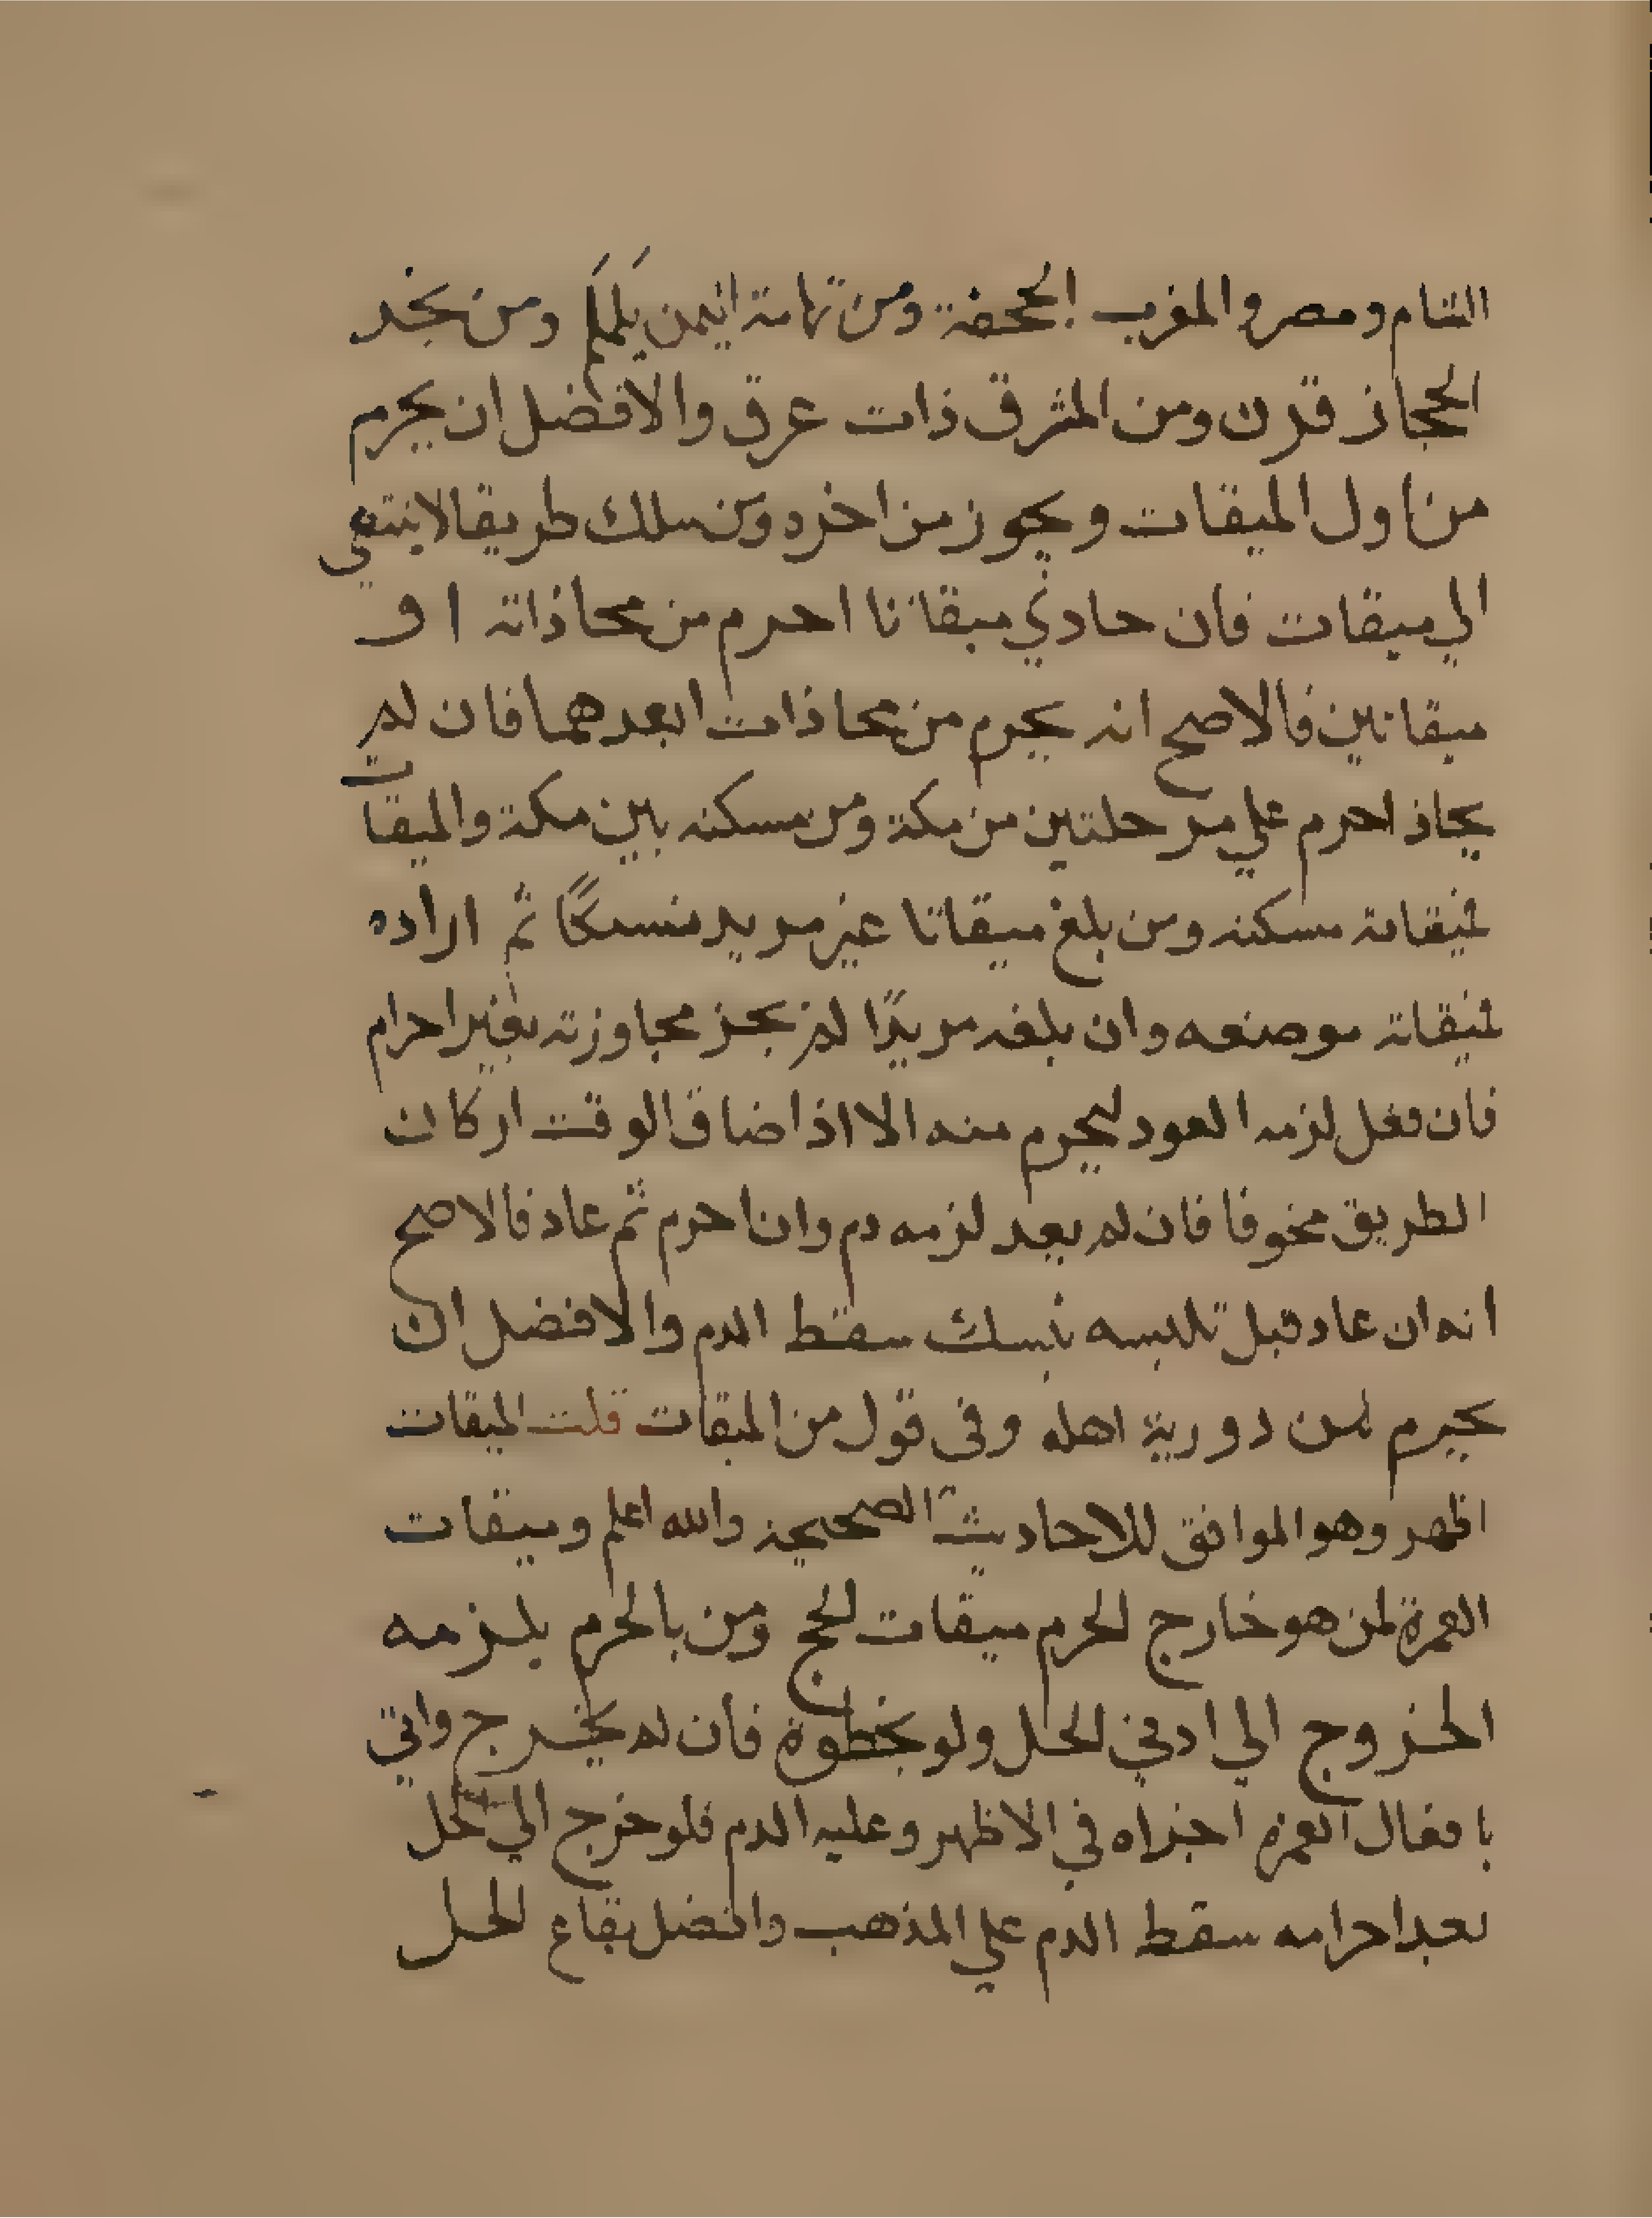 الشام ومصر والمغرب الجحفة ومن تهامة اليمن يَلمَلَم ومن نجد
الحجاز قرن ومن المشرق ذات عرق والافضل ان يحرم
من اول الميقات ويجوز من اخره ومن سلك طريقا لا ينتهي
الي ميقات فان حاذي ميقاتا احرم من محاذاته او
ميقاتين فالاصح انه يحرم من محاذات ابعدهما فان لم
يحاذ احرم علي مرحلتين من مكة ومن مسكنه بين مكة والميقات
فميقاته مسكنه ومن بلغ ميقاتا غير مريد نسكًا ثم اراده
فميقاته موضعه وان بلغه مريدًا لم يجز مجاوزته بغير احرام
فان فعل لزمه العود ليحرم منه الا اذا ضاق الوقت اركان
الطريق مخوفا فان لم يعد لزمه دم وان احرم ثم عاد فالاصح
انه ان عاد قبل تلبسه بنسك سقط الدم والافضل ان
يحرم لمن دويرية اهله وفي قول من الميقات قلت الميقات
اظهر وهو الموافق للاحاديث الصحيحة والله اعلم وميقات
العمرة لمن هو خارج الحرم ميقات الحج ومن بالحرم يلزمه
الخروج الي ادني الحل ولو بخطوة فان لم يخرج واتي
بافعال العمرة اجزاه في الاظهر وعليه الدم فلو خرج الي الحل
بعد احرامه سقط الدم علي المذهب وافضل بقاع الحل